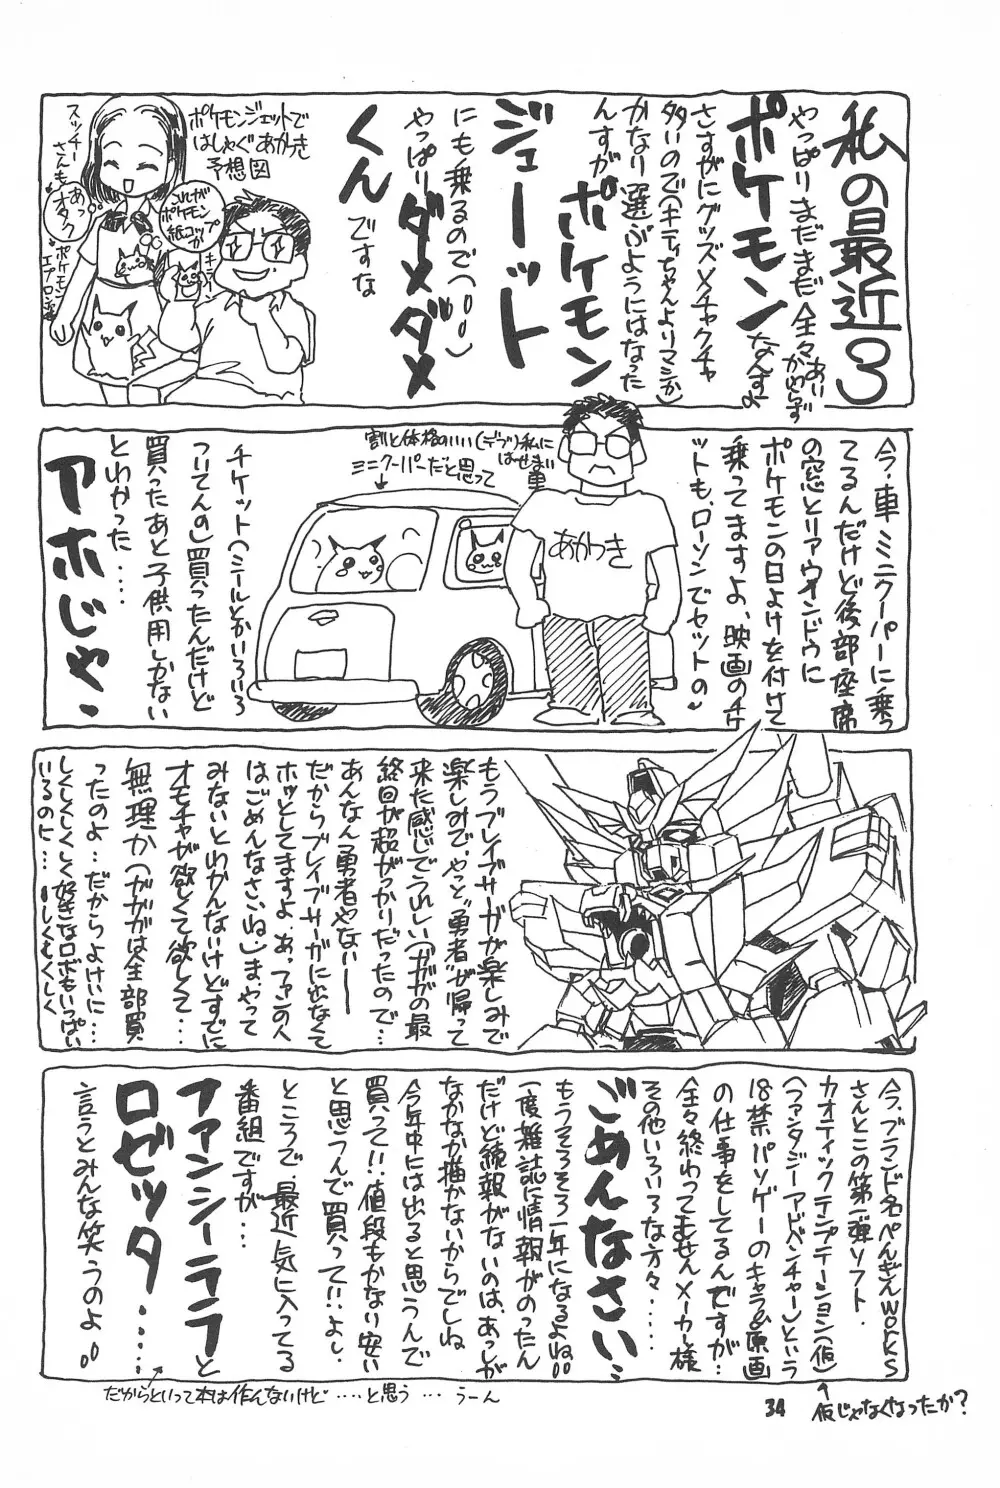 私の最近3
やっぱりまだまだ全々あいかわらず
ポケモンなんすよ
さすがにグッズメチャクチャ
多いので(キティちゃんよりマシか)
かなり選ぶようにはなった
んすが
ポケモン
ジェーット
にも乗るので(〇〇)
やっぱりダメダメ
くん
ですな
ポケモンジェットで
はしゃぐあかつき
予想図
コレが
ポケモン
紙コップ
かっ
キラーン
あっ
オタク
スッチー
さんも
ポケモン
エプロン
今・車ミニクーパーに乗っ
てるんだけど後部座席
の窓とリアウインドウに
ポケモンの日よけを付けて
乗ってますよ、映画のチケ
ットも、ローソンでセットの〜
割と体格のいい(デブ)私に
はせまい
車
ミニクーパーだと思って
あかつき
チケット(シールとかいろいろ
ついてんの)買ったんだけど
買ったあと子供用しかない
とわかった・・・・
アホじゃ・
もうブレイブサーガが楽しみで
楽しみで・やっと"勇者"が帰って
来た感じでうれしい(ガガガの最
終回が超がっかりだったので・・・
あんなん勇者やない——
だからブレイブサーガに出なくて
ホッとしてますよ・あっファンの人
はごめんなさいね)ま、やって
みないとわかんないけどすでに
オモチャが欲しくて欲しくて・・・
無理か(ガガガは全部買
ったのよ・・・だからよけいに・・・
しくしくしく好きなロボもいっぱい
いるのに・・・・しくしくしく
今、ブランド名ぺんぎんworks
さんとこの第一弾ソフト・
カオティックテンプテーション(仮)
(ファンタジーアドベンチャー)という
18禁パソゲーのキャラ&原画
の仕事をしてるんですが・・・
全々終わってませんメーカー様
その他いろいろな方々・・・・
ごめんなさい・・
もうそろそろ一年になるよね〇〇
一度雑誌に情報がのったん
だけど続報がないのは、あっしが
なかなか描かないからでしね
今年中には出ると思うんで
買って!!値段もかない安い
と思うんで買って!!よし
ところで・最近気に入ってる
番組ですが・・・
ファンシーララと
ロゼッタ・・・・
言うとみんな笑うのよ〇〇
だからといって本は作んないけど・・・・と思う・・・うーん
34
仮じゃなくなったか?